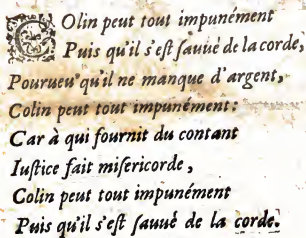 COlin peut tout impunément
Puis qu'il s'est ſauué de la corde,
Pourueu qu'il ne manque d'argent,
Colin peut tout impunément:
Car à qui fournit du contant
Iuſtice fait miſericorde,
Colin peut tout impunément
Puis qu'il s'eſt ſauué de la corde.